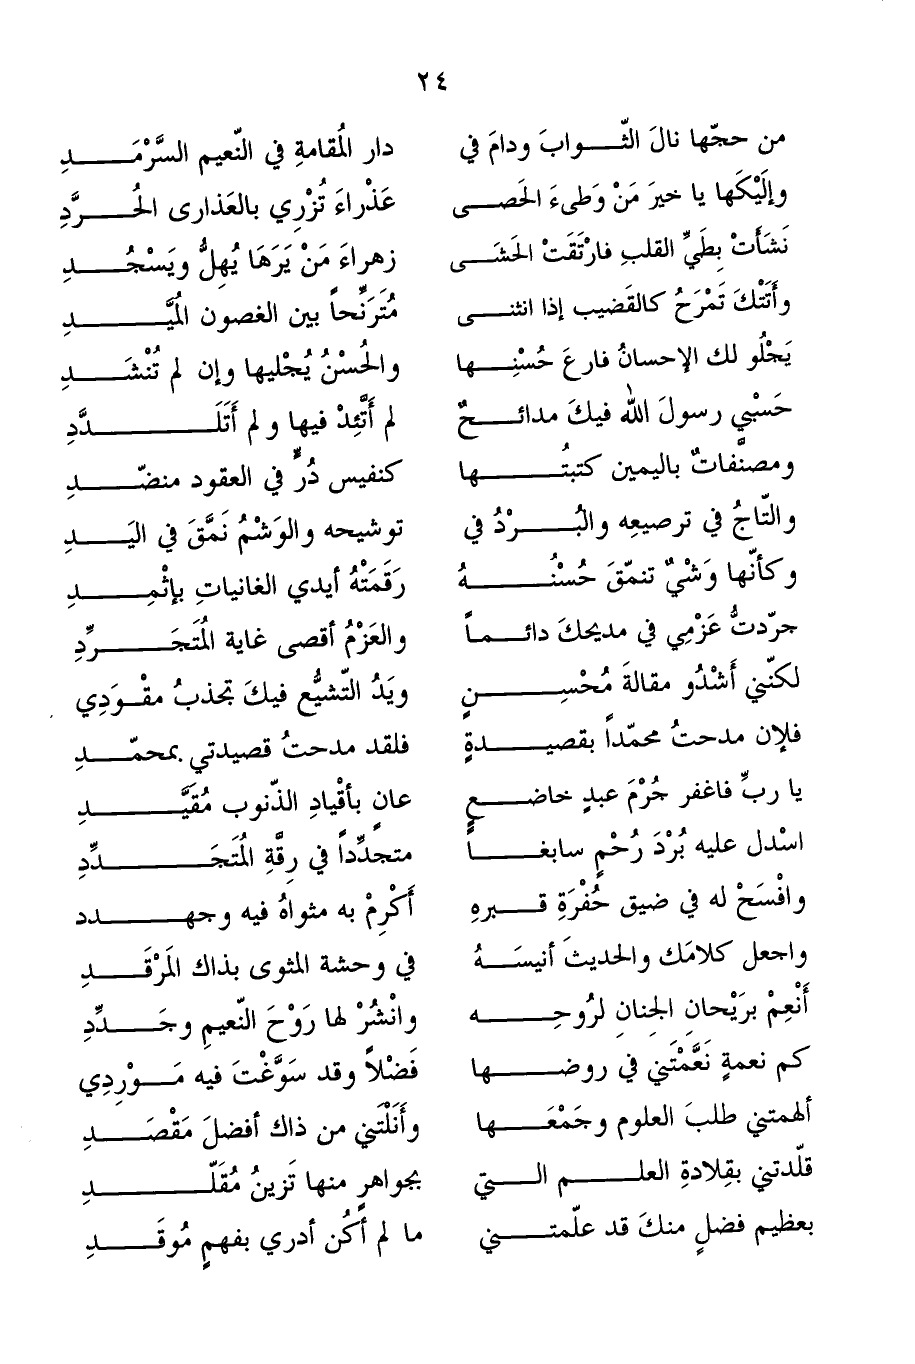 ٢٤
من حجّها نالَ الثّوابَ ودامَ في دار المُقامةِ في النّعيم السَّرْمَدِ
وإلَيْكَها يا خيرَ مَنْ وَطىءَ الحَصى عَذْراءَ تُزْري بالعَذارى الخُرَّدِ
نَشَأَتْ بِطَيِّ القلبِ فارْتَقَتْ الحَشَى زهراءَ مَنْ يَرَهَا يُهِلُّ ويَسْجُدِ
وأَتَتْكَ تَمْرَحُ كالقَضيب إذا انثنى مُتَرَنِّحاً بين الغصون المُيَّدِ
يَجْلُو لك الإحسانُ فارعَ حُسْنِها والحُسْنُ يُجْليها وإن لم تُنْشَدِ
حَسْبي رسولَ الله فيكَ مدائحٌ لم أَتَّئِدْ فيها ولم أَتَلَدَّدِ
ومصنَّفاتٌ باليمين كتبتُها كنفيس دُرٍّ في العقود منضّدِ
والتّاجُ في ترصيعِه والبُرْدُ في توشيحه والوَشْمُ نَمَّقَ في اليَدِ
وكأنّها وَشْيٌ تنمّقَ حُسْنُهُ رَقَمَتْهُ أيدي الغانياتِ بإثْمِدِ
جرّدتُ عَزْمِي في مديحكَ دائماً والعَزْمُ أقصى غاية المُتَجَرِّدِ
لكنّني أَشْدُو مقالةَ مُحْسِنٍ ويَدُ التّشيُّع فيكَ تجذبُ مقْوَدِي
فلإن مدحتُ محمّداً بقصيدةٍ فلقد مدحتُ قصيدتي بمحمّدِ
يا ربِّ فاغفر جُرْمَ عبدٍ خاضعٍ عانٍ بأقْيادِ الذّنوب مُقَيَّدِ
اسْدل عليه بُرْدَ رُحْمٍ سابغاً متجدِّداً في رِقَّةِ المُتَجَدِّدِ
وافْسَحْ له في ضيق حُفْرَةِ قبرهِ أَكْرِمْ به مثواهُ فيه وجهدد
واجعل كلامَك والحديثَ أنيسَهُ في وحشة المثوى بذاك المَرْقَدِ
أَنْعِمْ برَيْحانِ الجنان لرُوحِه وانْشُرْ لها رَوْحَ النّعيمِ وجَدِّدِ
كم نعمةٍ نَعَّمْتَني في روضها فَضْلاً وقد سَوَّغْتَ فيه مَوْرِدِي
ألهمتني طلبَ العلوم وجَمْعَها وأَنَلْتَني من ذاك أفضلَ مَقْصَدِ
قلّدتني بقِلادةِ العلم التي بجواهرٍ منها تَزينُ مُقَلّدِ
بعظيم فضلٍ منكَ قد علّمتني ما لم أكُن أدري بفهمٍ مُوقَدِ